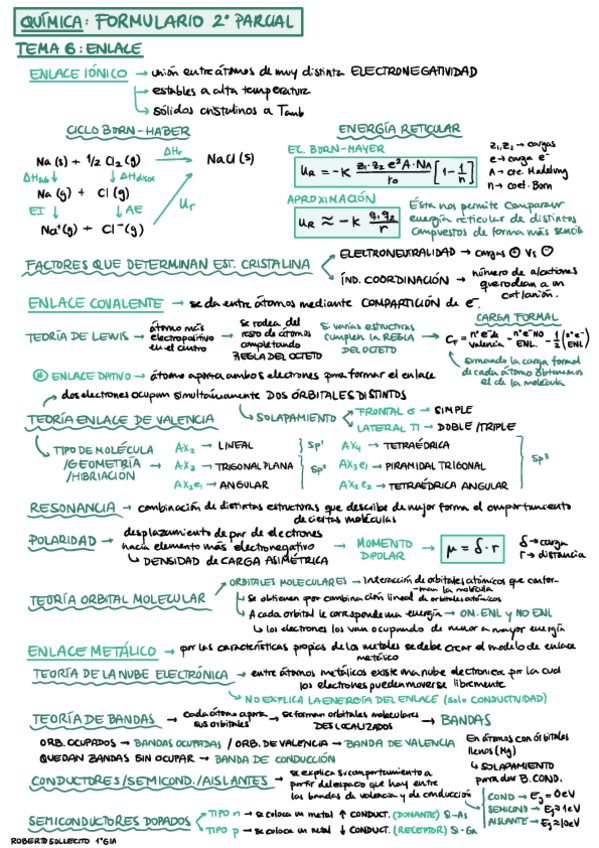 QUÍMICA: FORMULARIO 2º PARCIAL
TEMA 6: ENLACE
ENLACE IÓNICO → unión entre átomos de muy distinta ELECTRONEGATIVIDAD
→ estables a alta temperatura
→ sólidos cristalinos a Tamb
CICLO BORN-HABER
Na (s) + 1/2 Cl2 (g) ΔHf NaCl (s)
ΔHsub ΔHdisoc
Na (g) + Cl (g)
EI AE Ur
Na+(g) + Cl-(g)
ENERGÍA RETICULAR
EC. BORN-MAYER
UR = -K z1·z2 e² A·NA / r0 [1 - 1/n]
z1, z2 → cargas
e → carga e-
A → cte. Madelung
n → coef. Born
APROXIMACIÓN
UR ≈ -K q1·q2 / r
Ésta nos permite comparar
energía reticular de distintos
compuestos de forma más sencilla
FACTORES QUE DETERMINAN EST. CRISTALINA
ELECTRONEUTRALIDAD → cargas ⊕ Vs ⊖
ÍND. COORDINACIÓN → número de
que rodean a un
catión/anión.
ENLACE COVALENTE → se da entre átomos mediante COMPARTICIÓN de e-.
CARGA FORMAL
TEORÍA DE LEWIS → átomo más
electropositivo
en el centro
→ se rodea del
resto de átomos
completando
REGLA DEL OCTETO
→ Si varias estructuras
cumplen la REGLA
DEL OCTETO
→ CF = nº e- de valencia - nº e- NO ENL. - 1/2 (nº e- ENL)
sumando la carga formal
de cada átomo obtenemos
el de la molécula
* ENLACE DATIVO → átomo aporta ambos electrones para formar el enlace
dos electrones ocupan simultáneamente DOS ÓRBITALES DISTINTOS
TEORÍA ENLACE DE VALENCIA
SOLAPAMIENTO
FRONTAL σ → SIMPLE
LATERAL π → DOBLE/TRIPLE
TIPO DE MOLÉCULA
/GEOMETRÍA
/HIBRIACIÓN
AX2 → LINEAL } Sp¹
AX3 → TRIGONAL PLANA
AX2e1 → ANGULAR } Sp²
AX4 → TETRAÉDRICA
AX3e1 → PIRAMIDAL TRIGONAL
AX2e2 → TETRAÉDRICA ANGULAR } Sp³
RESONANCIA → combinación de distintas estructuras que describe de mejor forma el comportamiento
de ciertas moléculas
POLARIDAD → desplazamiento de par de electrones
hacia elemento más electronegativo
↳ DENSIDAD DE CARGA ASIMÉTRICA
→ MOMENTO
DIPOLAR
→ μ = δ · r
δ → carga
r → distancia
TEORÍA ORBITAL MOLECULAR
ORBITALES MOLECULARES → Interacción de orbitales atómicos que confor-
man la molécula
↳ Se obtienen por combinación lineal de orbitales atómicos
↳ A cada orbital le corresponde una energía → OM. ENL y NO ENL
↳ los electrones los van ocupando de menor a mayor energía
ENLACE METÁLICO → por las características propias de los metales se debe crear el modelo de enlace
metálico
TEORÍA DE LA NUBE ELECTRÓNICA → entre átomos metálicos existe una nube electrónica por la cual
los electrones pueden moverse libremente
↳ NO EXPLICA LA ENERGÍA DEL ENLACE (solo CONDUCTIVIDAD)
TEORÍA DE BANDAS → cada átomo aporta
sus orbitales
→ se forman orbitales moleculares
DESLOCALIZADOS
→ BANDAS
ORB. OCUPADOS → BANDAS OCUPADAS / ORB. DE VALENCIA → BANDA DE VALENCIA
QUEDAN BANDAS SIN OCUPAR → BANDA DE CONDUCCIÓN
En átomos con órbitales
llenos (Mg)
↳ SOLAPAMIENTO
para dar B. COND.
CONDUCTORES/SEMICOND./AISLANTES → se explica su comportamiento a
partir del espacio que hay entre
las bandas de valencia y de conducción
COND → Eg = 0 eV
SEMICOND → Eg ≈ 1 eV
AISLANTE → Eg ≈ 10 eV
SEMICONDUCTORES DOPADOS
TIPO n → se coloca un metal ↑ CONDUCT. (DONANTE) Si-As
TIPO p → se coloca un metal ↓ CONDUCT. (RECEPTOR) Si-Ga
ROBERTO SOLLECITO 1ºGIA